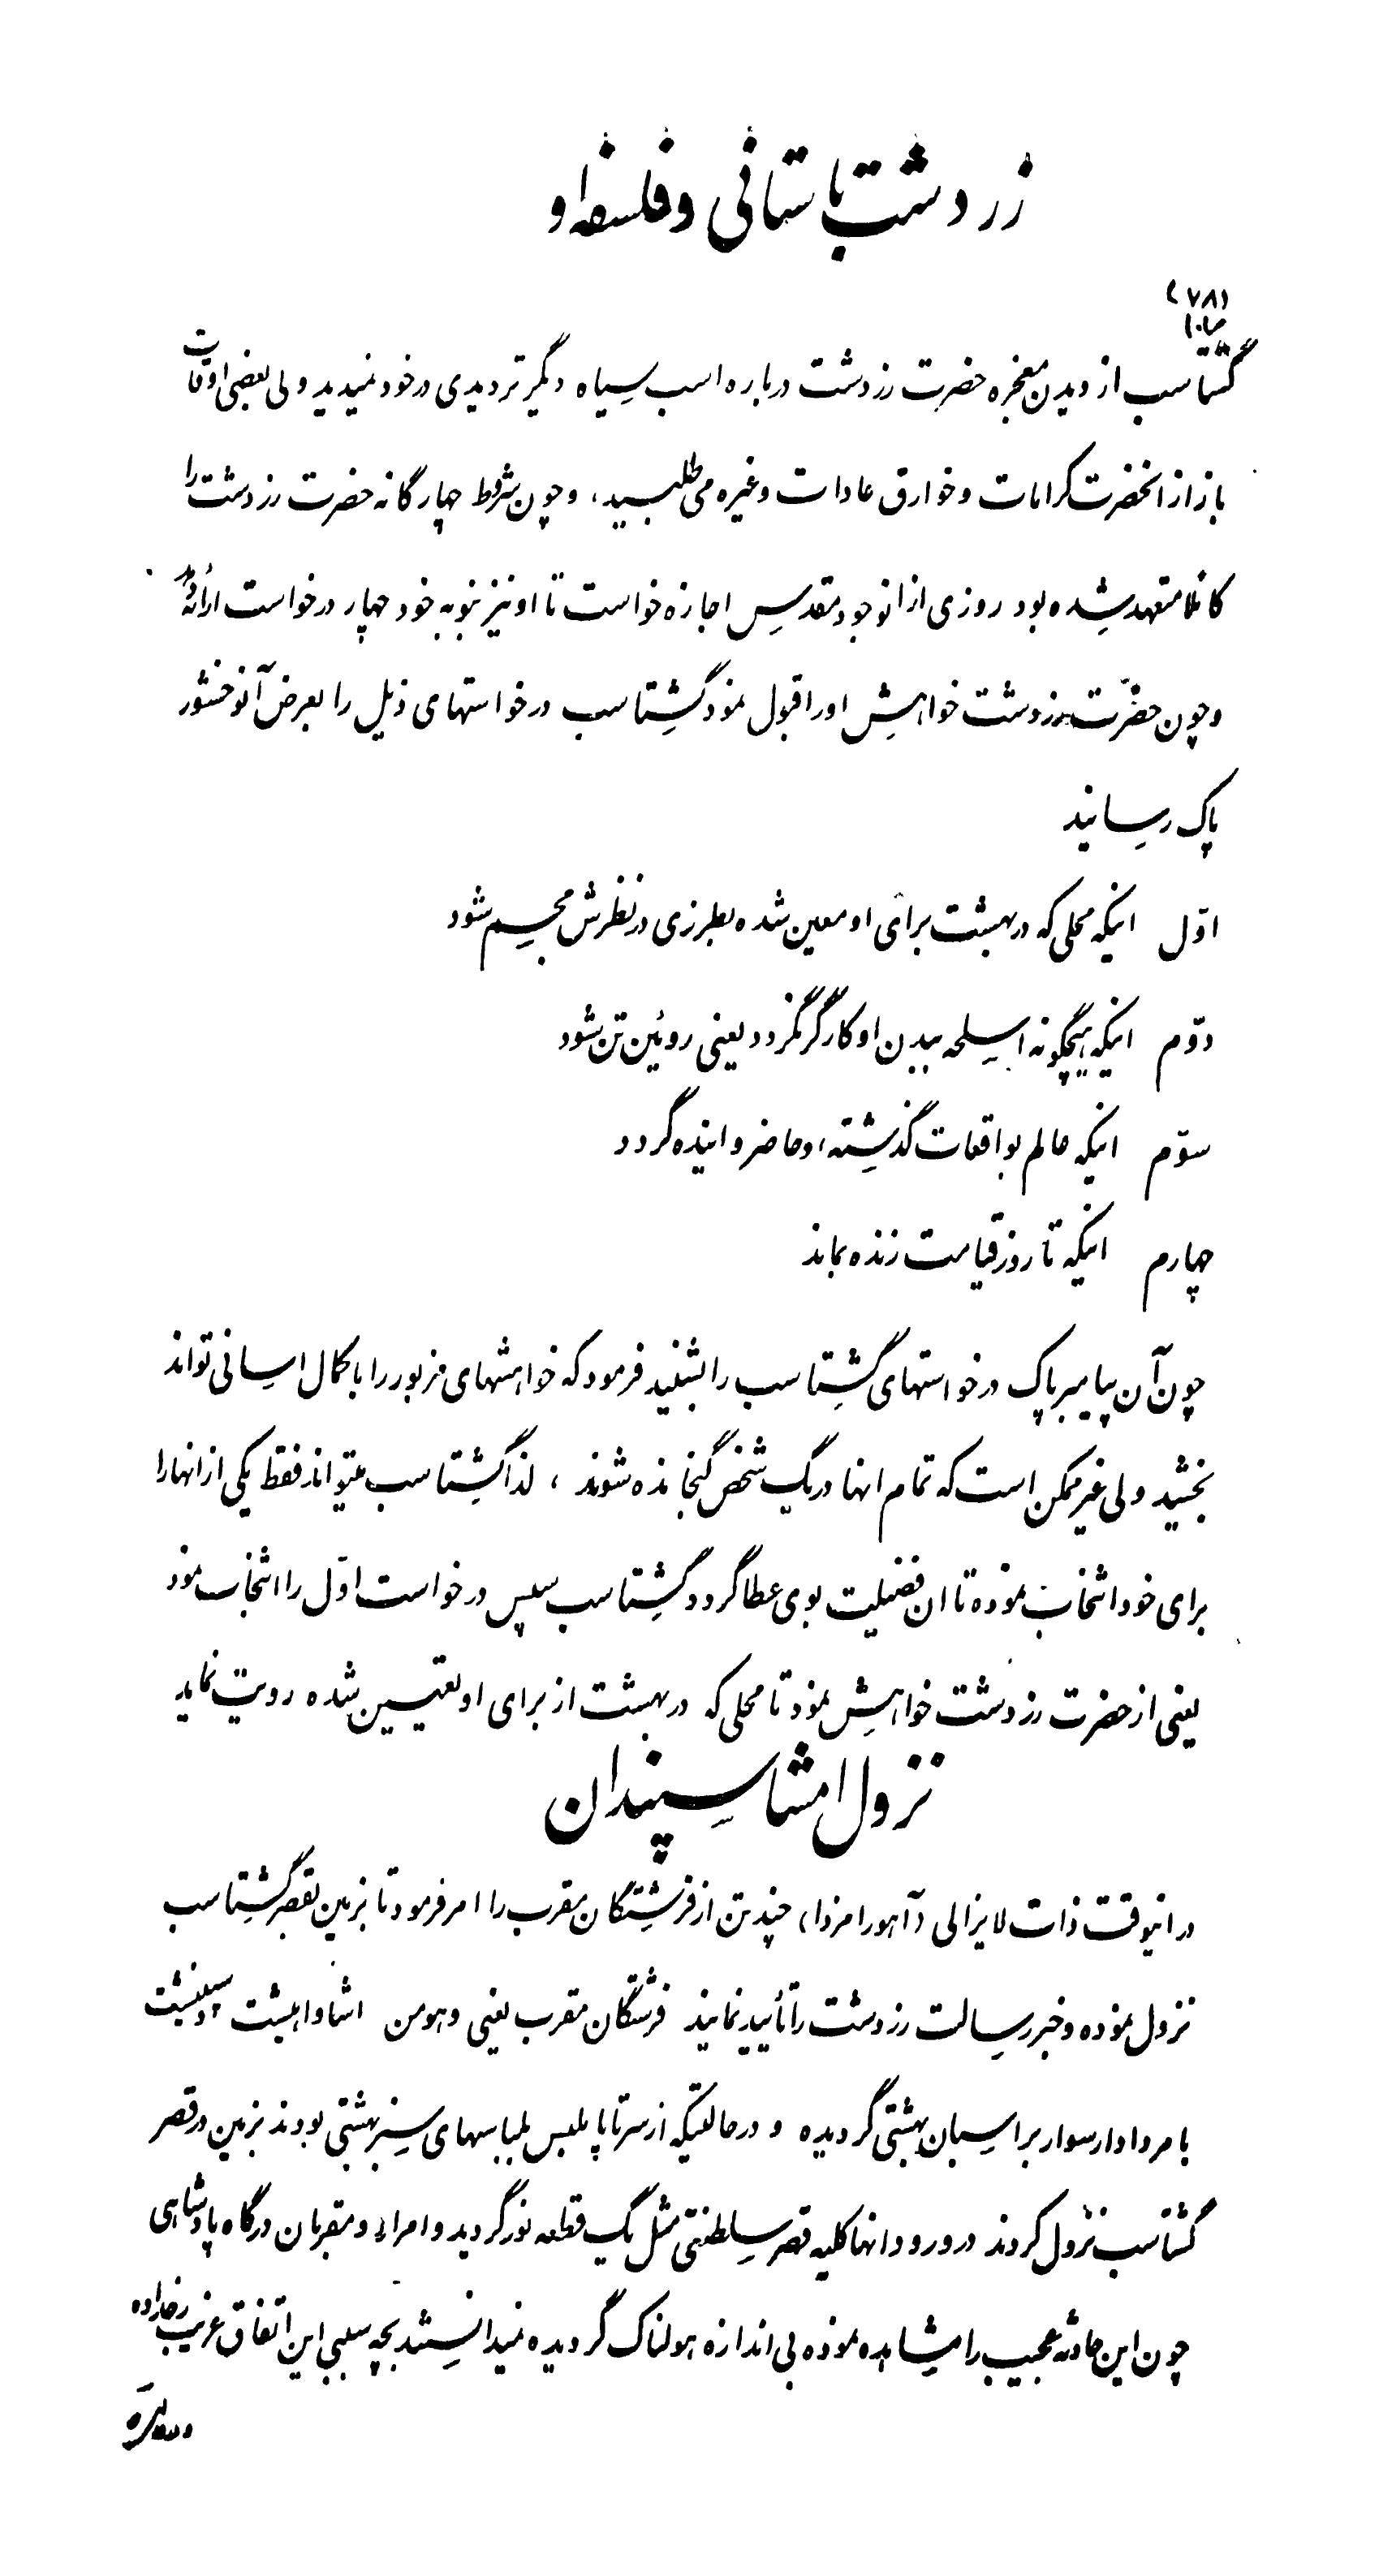 زردشت باستانی و فلسفه او
(۷۸)
گشتاسب از دیدن معجزه حضرت زردشت درباره اسب سیاه دیگر تردیدی در خود نمیدید ولی بعضی اوقات
باز از انحضرت کرامات و خوارق عادات و غیره می طلبید، و چون شروط چهارگانه حضرت زردشت را
کاملا متعهد شده بود روزی از انوجود مقدس اجازه خواست تا او نیز بنوبه خود چهار درخواست ارائه
و چون حضرت زردشت خواهش او را قبول نمود گشتاسب درخواستهای ذیل را بعرض آنوخشور
پاک رسانید
اوّل اینکه محلی که در بهشت برای او معین شده بطرزی در نظرش مجسم شود
دوّم اینکه هیچگونه اسلحه ببدن او کارگر نگردد یعنی روئین تن بشود
سوّم اینکه عالم بواقعات گذشته، وحاضر و اینده گردد
چهارم اینکه تا روز قیامت زنده بماند
چون آن پیامبر پاک درخواستهای گشتاسب را بشنید فرمود که خواهشهای مزبور را با کمال اسانی تواند
بخشید ولی غیر ممکن است که تمام انها در یک شخص گنجانده شوند ، لذا گشتاسب میتواند فقط یکی از انها را
برای خود انتخاب نموده تا ان فضیلت بوی عطا گردد گشتاسب سپس درخواست اوّل را انتخاب نمود
یعنی از حضرت زردشت خواهش نمود تا محلی که در بهشت از برای او تعیین شده رویت نماید
نزول امشاسپندان
در اینوقت ذات لایزالی (آهورامزدا) چند تن از فرشتگان مقرب را امر فرمود تا بزمین بقصر گشتاسب
نزول نموده و خبر رسالت زردشت را تأیید نمایند فرشتگان مقرب یعنی وهومن اشاواهیشت
بامر دادار سوار بر اسبان بهشتی گردیده و در حالتیکه از سر تا پا ملبس بلباسهای سبز بهشتی بودند بزمین در قصر
گشتاسب نزول کردند در ورود انها کلیه قصر سلطنتی مثل یک قطعه نور گردید و امراء و مقربان درگاه پادشاهی
چون این حادثه عجیب را مشاهده نموده بی اندازه هولناک گردیده نمیدانستند بچه سببی این اتفاق غریب رخداده